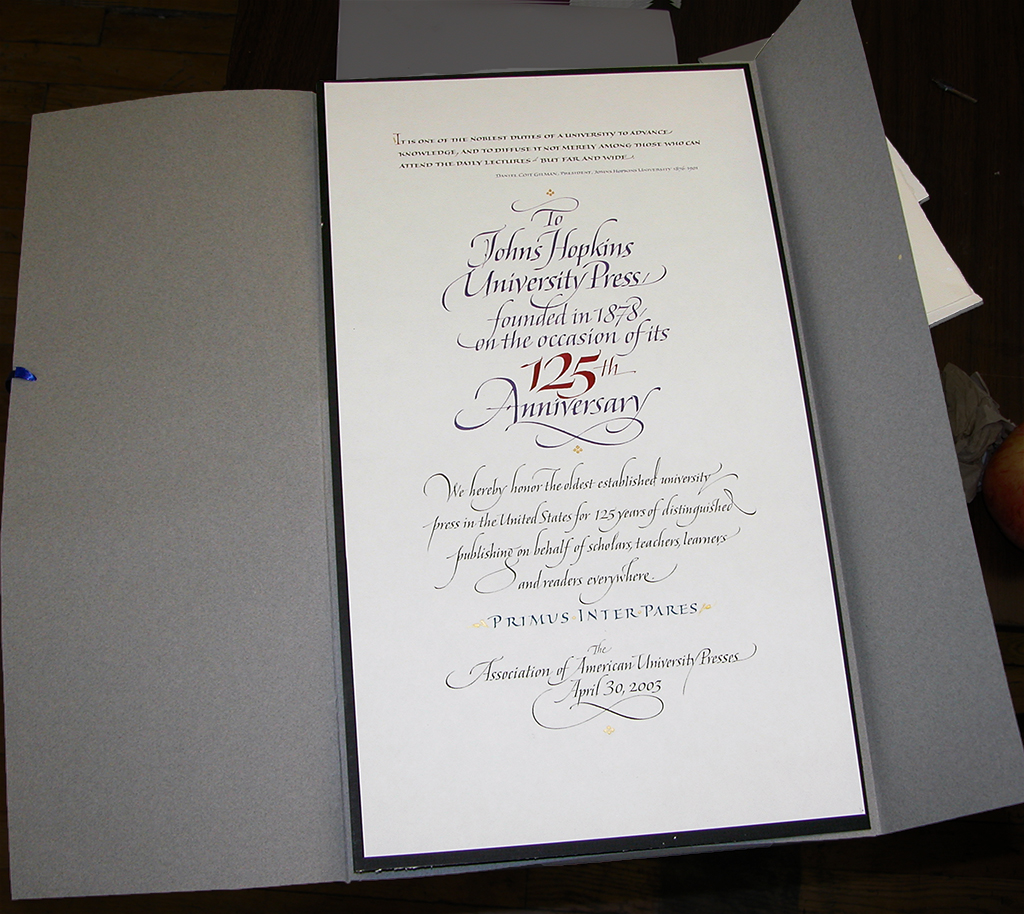 It is one of the noblest duties of a university to advance
knowledge, and to diffuse it not merely among those who can
attend the daily lectures - but far and wide.
Daniel Coit Gilman, President, Johns Hopkins University 1876-1901
To
Johns Hopkins
University Press
founded in 1878
on the occasion of its
125th
Anniversary
We hereby honor the oldest established university
press in the United States for 125 years of distinguished
publishing on behalf of scholars, teachers, learners
and readers everywhere.
PRIMUS·INTER·PARES
The
Association of American University Presses
April 30, 2003